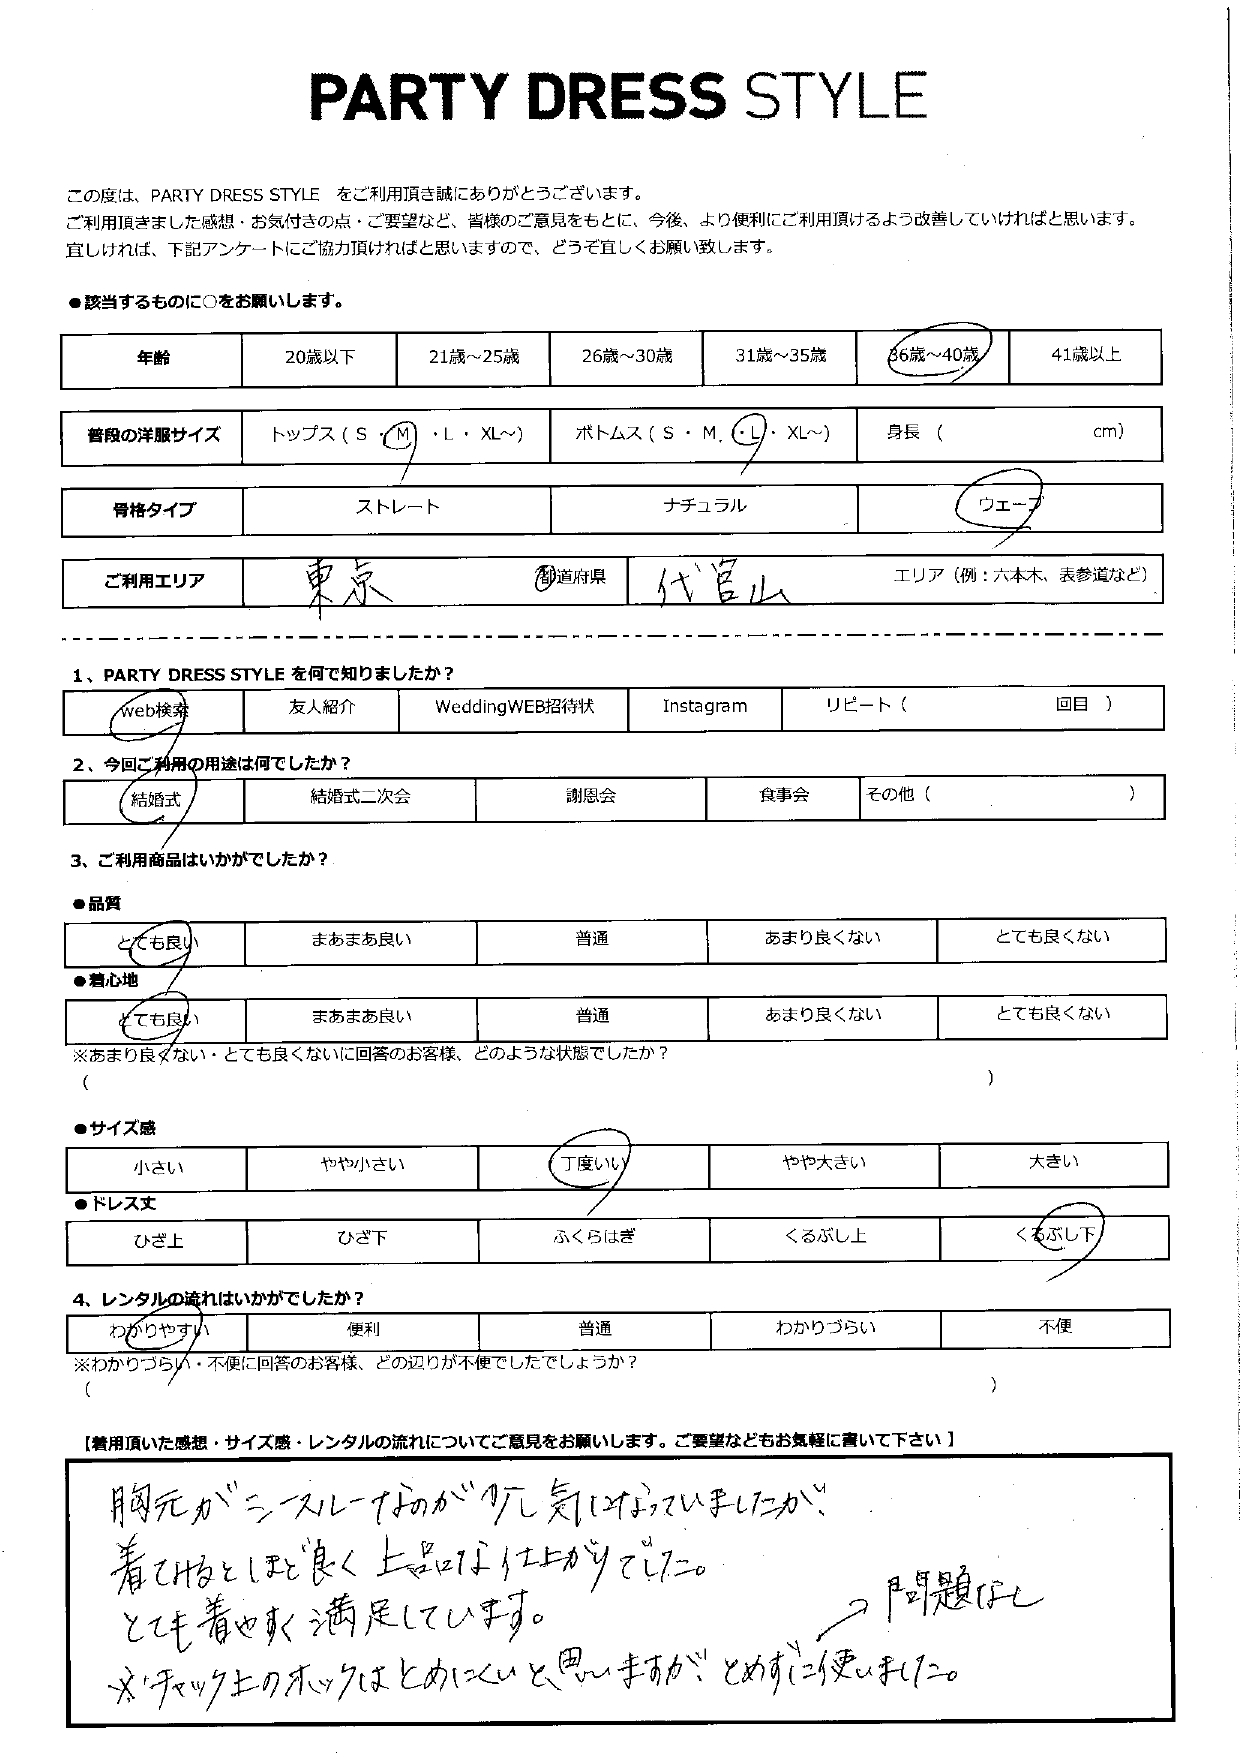 PARTY DRESS STYLE
この度は、PARTY DRESS STYLE をご利用頂き誠にありがとうございます。
ご利用頂きました感想・お気付きの点・ご要望など、皆様のご意見をもとに、今後、より便利にご利用頂けるよう改善していければと思います。
宜しければ、下記アンケートにご協力頂ければと思いますので、どうぞ宜しくお願い致します。
●該当するものに○をお願いします。
年齢 20歳以下 21歳～25歳 26歳～30歳 31歳～35歳 36歳～40歳 41歳以上
普段の洋服サイズ トップス ( S ・ M ・ L ・ XL～) ボトムス ( S ・ M ・ L ・ XL～) 身長 ( cm)
骨格タイプ ストレート ナチュラル ウェーブ
ご利用エリア 東京 都道府県 代官山 エリア（例：六本木、表参道など）
1、PARTY DRESS STYLE を何で知りましたか？
web検索 友人紹介 WeddingWEB招待状 Instagram リピート（ 回目 ）
2、今回ご利用の用途は何でしたか？
結婚式 結婚式二次会 謝恩会 食事会 その他（ ）
3、ご利用商品はいかがでしたか？
●品質
とても良い まあまあ良い 普通 あまり良くない とても良くない
●着心地
とても良い まあまあ良い 普通 あまり良くない とても良くない
※あまり良くない・とても良くないに回答のお客様、どのような状態でしたか？
( )
●サイズ感
小さい やや小さい 丁度いい やや大きい 大きい
●ドレス丈
ひざ上 ひざ下 ふくらはぎ くるぶし上 くるぶし下
4、レンタルの流れはいかがでしたか？
わかりやすい 便利 普通 わかりづらい 不便
※わかりづらい・不便に回答のお客様、どの辺りが不便でしたでしょうか？
( )
【着用頂いた感想・サイズ感・レンタルの流れについてご意見をお願いします。ご要望などもお気軽に書いて下さい】
胸元がシースルーなのが少し気になっていましたが、
着てみるとほど良く上品な仕上がりでした。
とても着やすく満足しています。 → 問題なし
※チャック上のホックはとめにくいと思いますが、とめずに使いました。